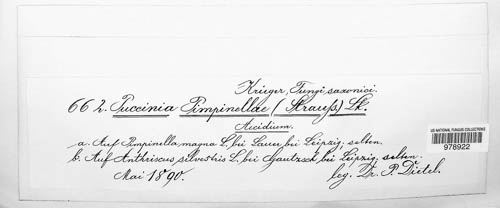 Krieger, Fungi saxonici.
662. Puccinia Pimpinellae (Strauß) Lk.
Aecidium.
US NATIONAL FUNGUS COLLECTIONS
978922
a. Auf Pimpinella magna L., bei Lauer, bei Leipzig, selten.
b. Auf Anthriscus silvestris L., bei Gautzsch, bei Leipzig, selten.
Mai 1890.
leg. Dr. P. Dietel.